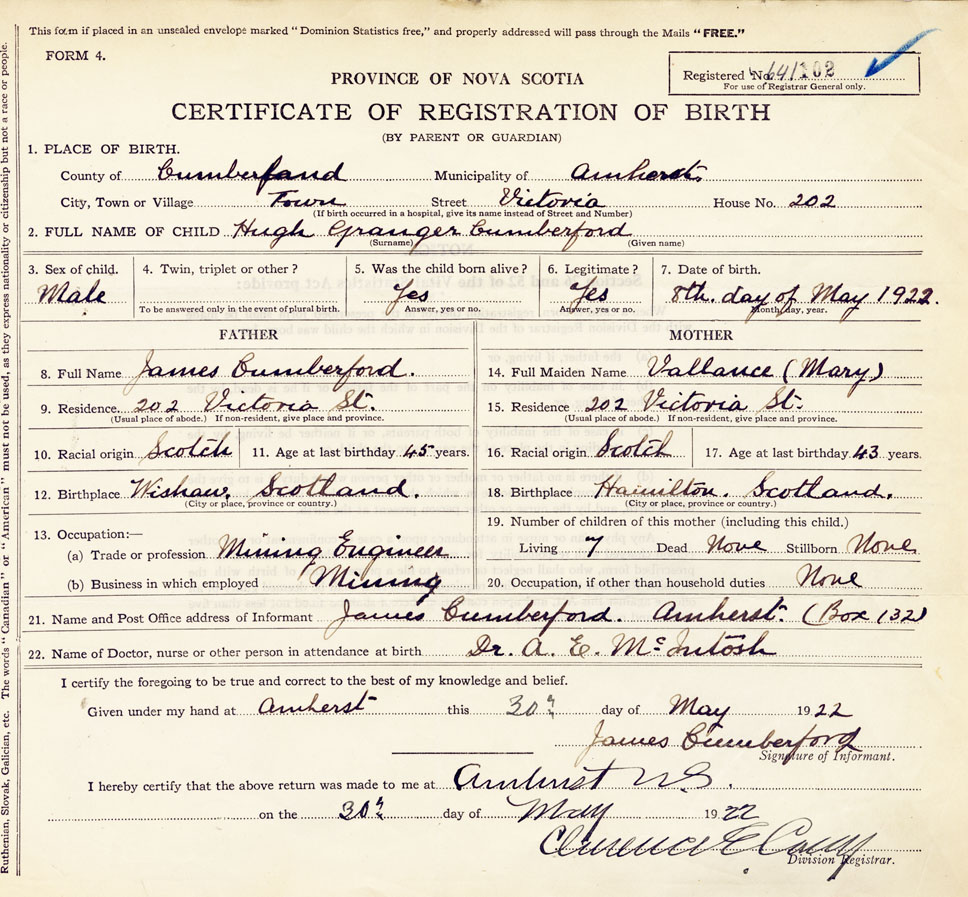 This form if placed in an unsealed envelope marked "Dominion Statistics free," and properly addressed will pass through the Mails "FREE."
FORM 4.
Registered No. 641102
For use of Registrar General only.
PROVINCE OF NOVA SCOTIA
CERTIFICATE OF REGISTRATION OF BIRTH
(BY PARENT OR GUARDIAN)
1. PLACE OF BIRTH.
County of Cumberland Municipality of Amherst.
City, Town or Village Town Street Victoria House No. 202
(If birth occurred in a hospital, give its name instead of Street and Number)
2. FULL NAME OF CHILD Hugh Granger Cumberford
(Surname) (Given name)
3. Sex of child. Male
4. Twin, triplet or other?
To be answered only in the event of plural birth.
5. Was the child born alive? Yes
Answer, yes or no.
6. Legitimate? Yes
Answer, yes or no.
7. Date of birth. 8th. day of May 1922.
Month, day, year.
FATHER
8. Full Name James Cumberford.
9. Residence. 202 Victoria St.
(Usual place of abode.) If non-resident, give place and province.
10. Racial origin Scotch 11. Age at last birthday 45 years.
12. Birthplace Wishaw. Scotland.
(City or place, province or country.)
13. Occupation:—
(a) Trade or profession Mining Engineer
(b) Business in which employed Mining
MOTHER
14. Full Maiden Name Vallance (Mary)
15. Residence 202 Victoria St.
(Usual place of abode.) If non-resident, give place and province.
16. Racial origin Scotch 17. Age at last birthday 43 years.
18. Birthplace Hamilton. Scotland.
(City or place, province or country.)
19. Number of children of this mother (including this child.)
Living 7 Dead None Stillborn None
20. Occupation, if other than household duties None
21. Name and Post Office address of Informant James Cumberford. Amherst. (Box 132)
22. Name of Doctor, nurse or other person in attendance at birth Dr. A. E. McIntosh
I certify the foregoing to be true and correct to the best of my knowledge and belief.
Given under my hand at Amherst this 30th day of May 1922
James Cumberford
Signature of Informant.
I hereby certify that the above return was made to me at Amherst N.S.
on the 30th day of May 1922
Clarence E
Division Registrar.
Ruthenian, Slovak, Galician, etc. The words "Canadian" or "American" must not be used, as they express nationality or citizenship but not a race or people.